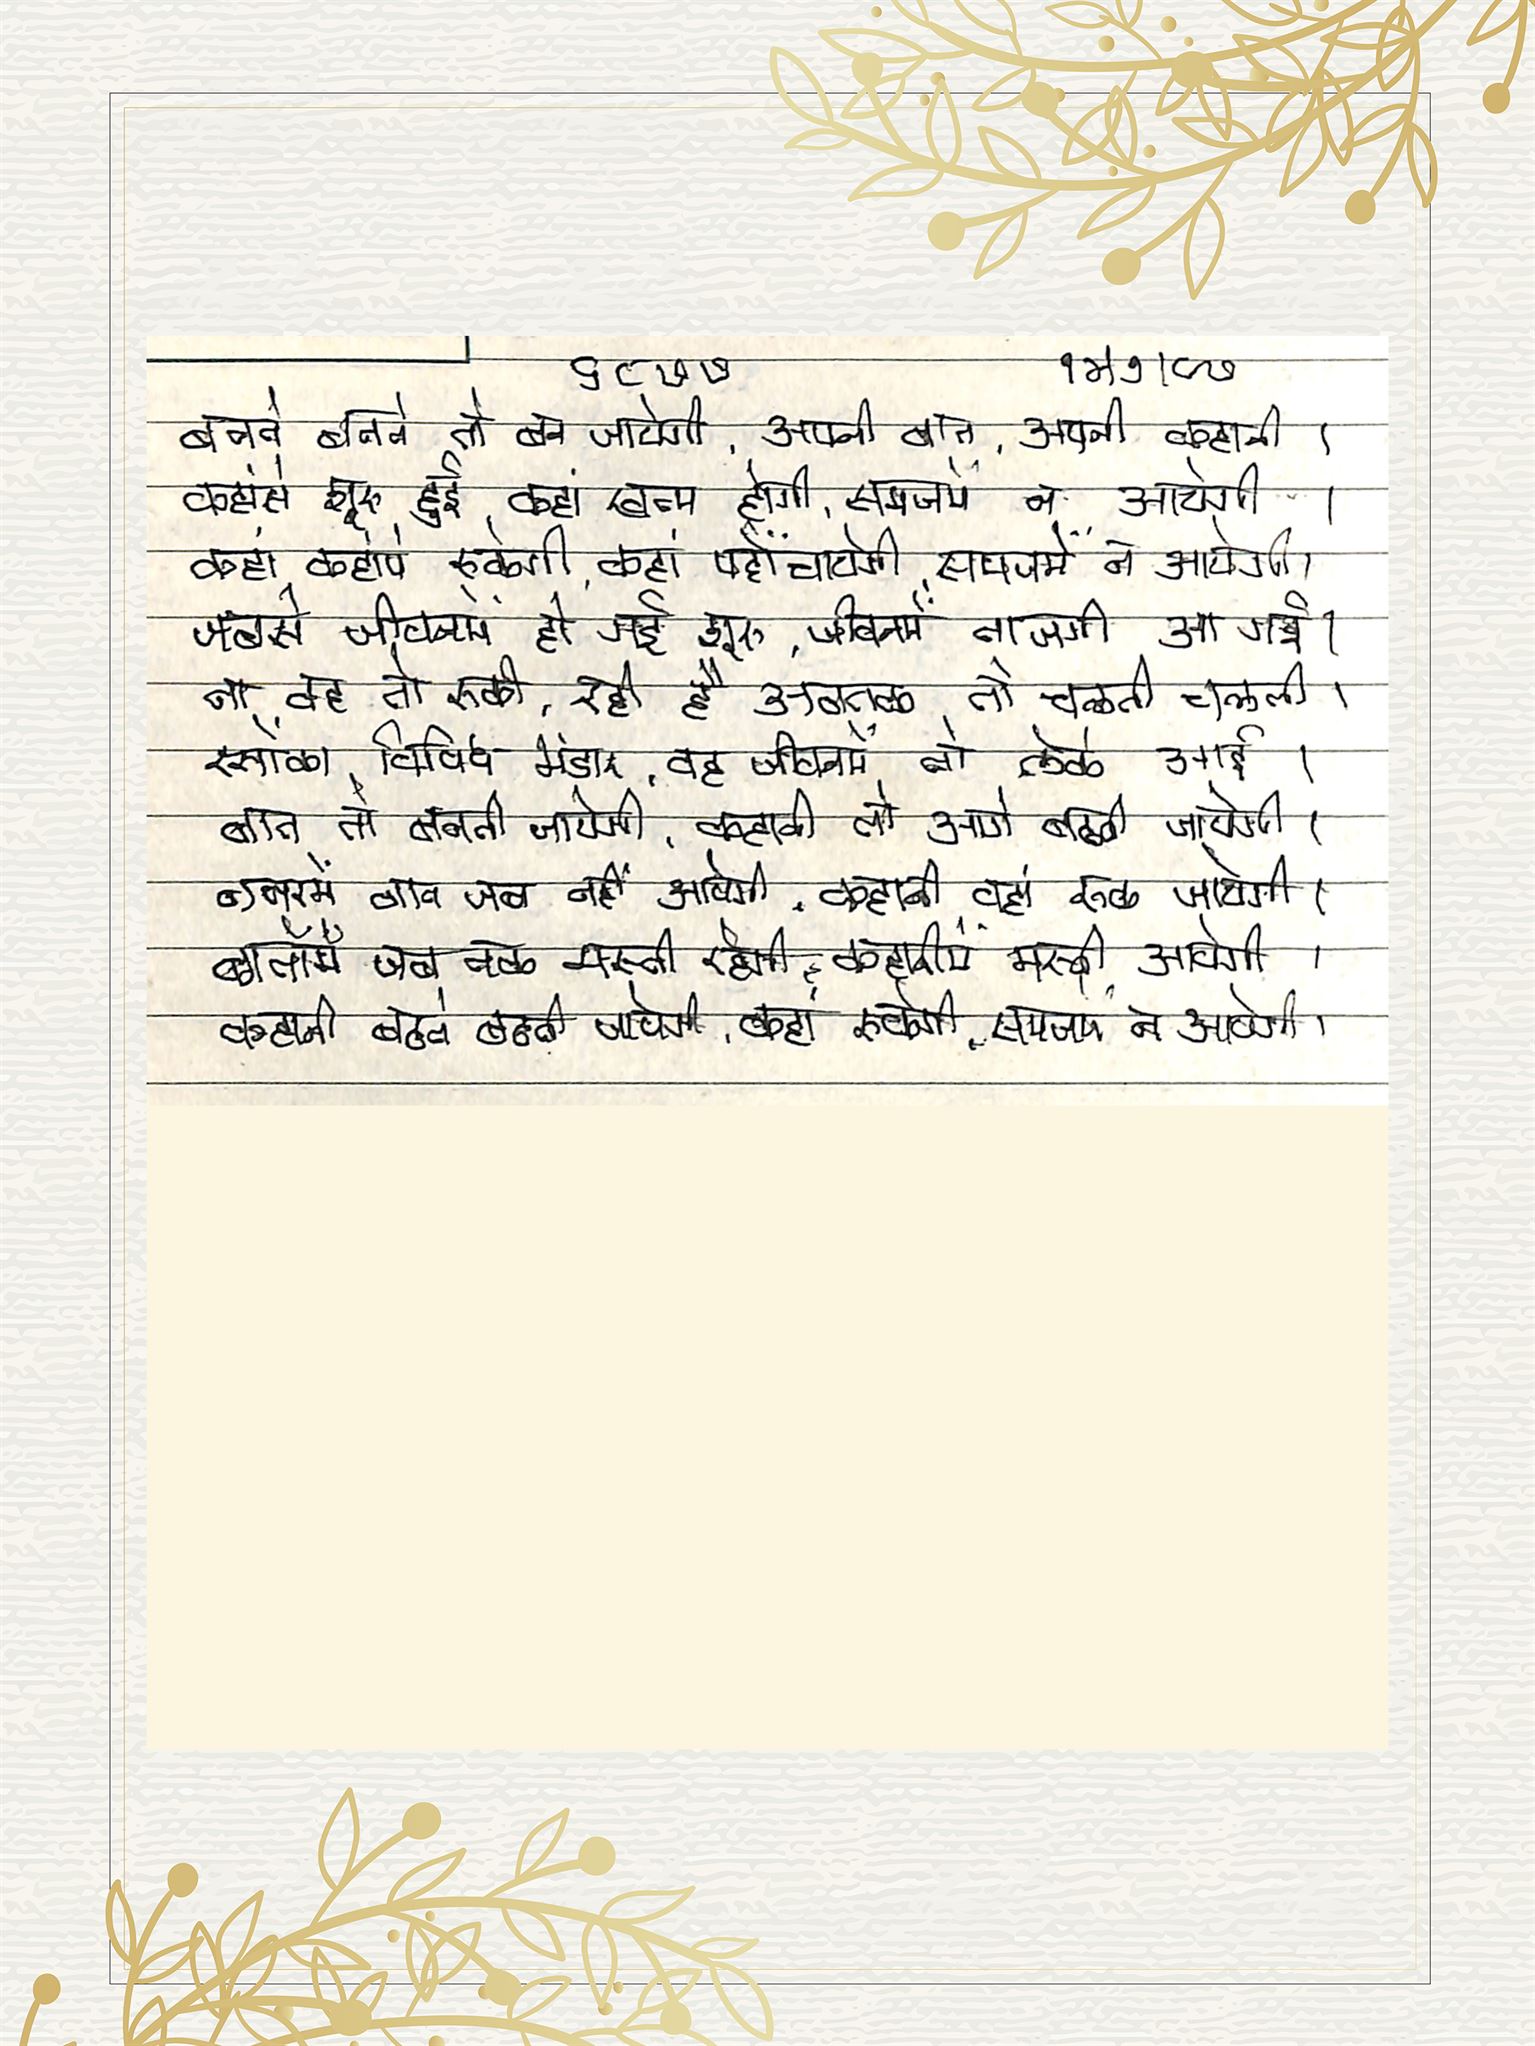 बनते बनते तो बन जायेगी, अपनी बात, अपनी कहानी ।
कहांसे शूरू हुई, कहां खत्म होगी, समजमें न आयेगी ।
कहां, कहांपे रुकेगी, कहां पहोंचायेगी, समजमें न आयेगी।
जबसे जीवनमें हो गई शूरू, जीवनमें ताजगी आ गई।
ना वह तो रुकी, रही है अबतक तो चलती चलती ।
विविध भंडार, वह जीवनमें तो लेके आई ।
बात तो बनती जायेगी, कहानी तो आगे बढती जायेगी ।
नजरमें बात जब नहीं आयेगी, कहानी वहां रुक जायेगी ।
बातोंमें जब तक मस्ती रहेगी, कहानीमें मस्ती आयेगी ।
कहानी बढते बढती जायेगी, कहां रुकेगी, समजमें न आयेगी।